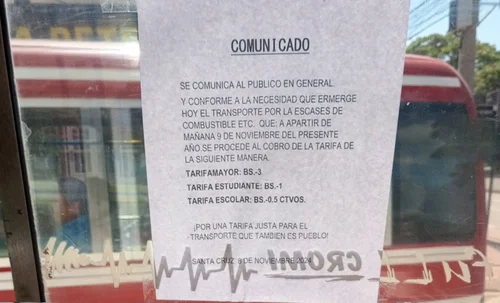 COMUNICADO
SE COMUNICA AL PUBLICO EN GENERAL.
Y CONFORME A LA NECESIDAD QUE ERMERGE
HOY EL TRANSPORTE POR LA ESCASES DE
COMBUSTIBLE ETC. QUE; A APARTIR DE
MAÑANA 9 DE NOVIEMBRE DEL PRESENTE
AÑO SE PROCEDE AL COBRO DE LA TARIFA DE
LA SIGUIENTE MANERA.
TARIFAMAYOR: BS.-3
TARIFA ESTUDIANTE: BS.-1
TARIFA ESCOLAR: BS.-0.5 CTVOS.
¡POR UNA TARIFA JUSTA PARA EL
TRANSPORTE QUE TAMBIEN ES PUEBLO!
SANTA CRUZ, 8 DE NOVIEMBRE 2024